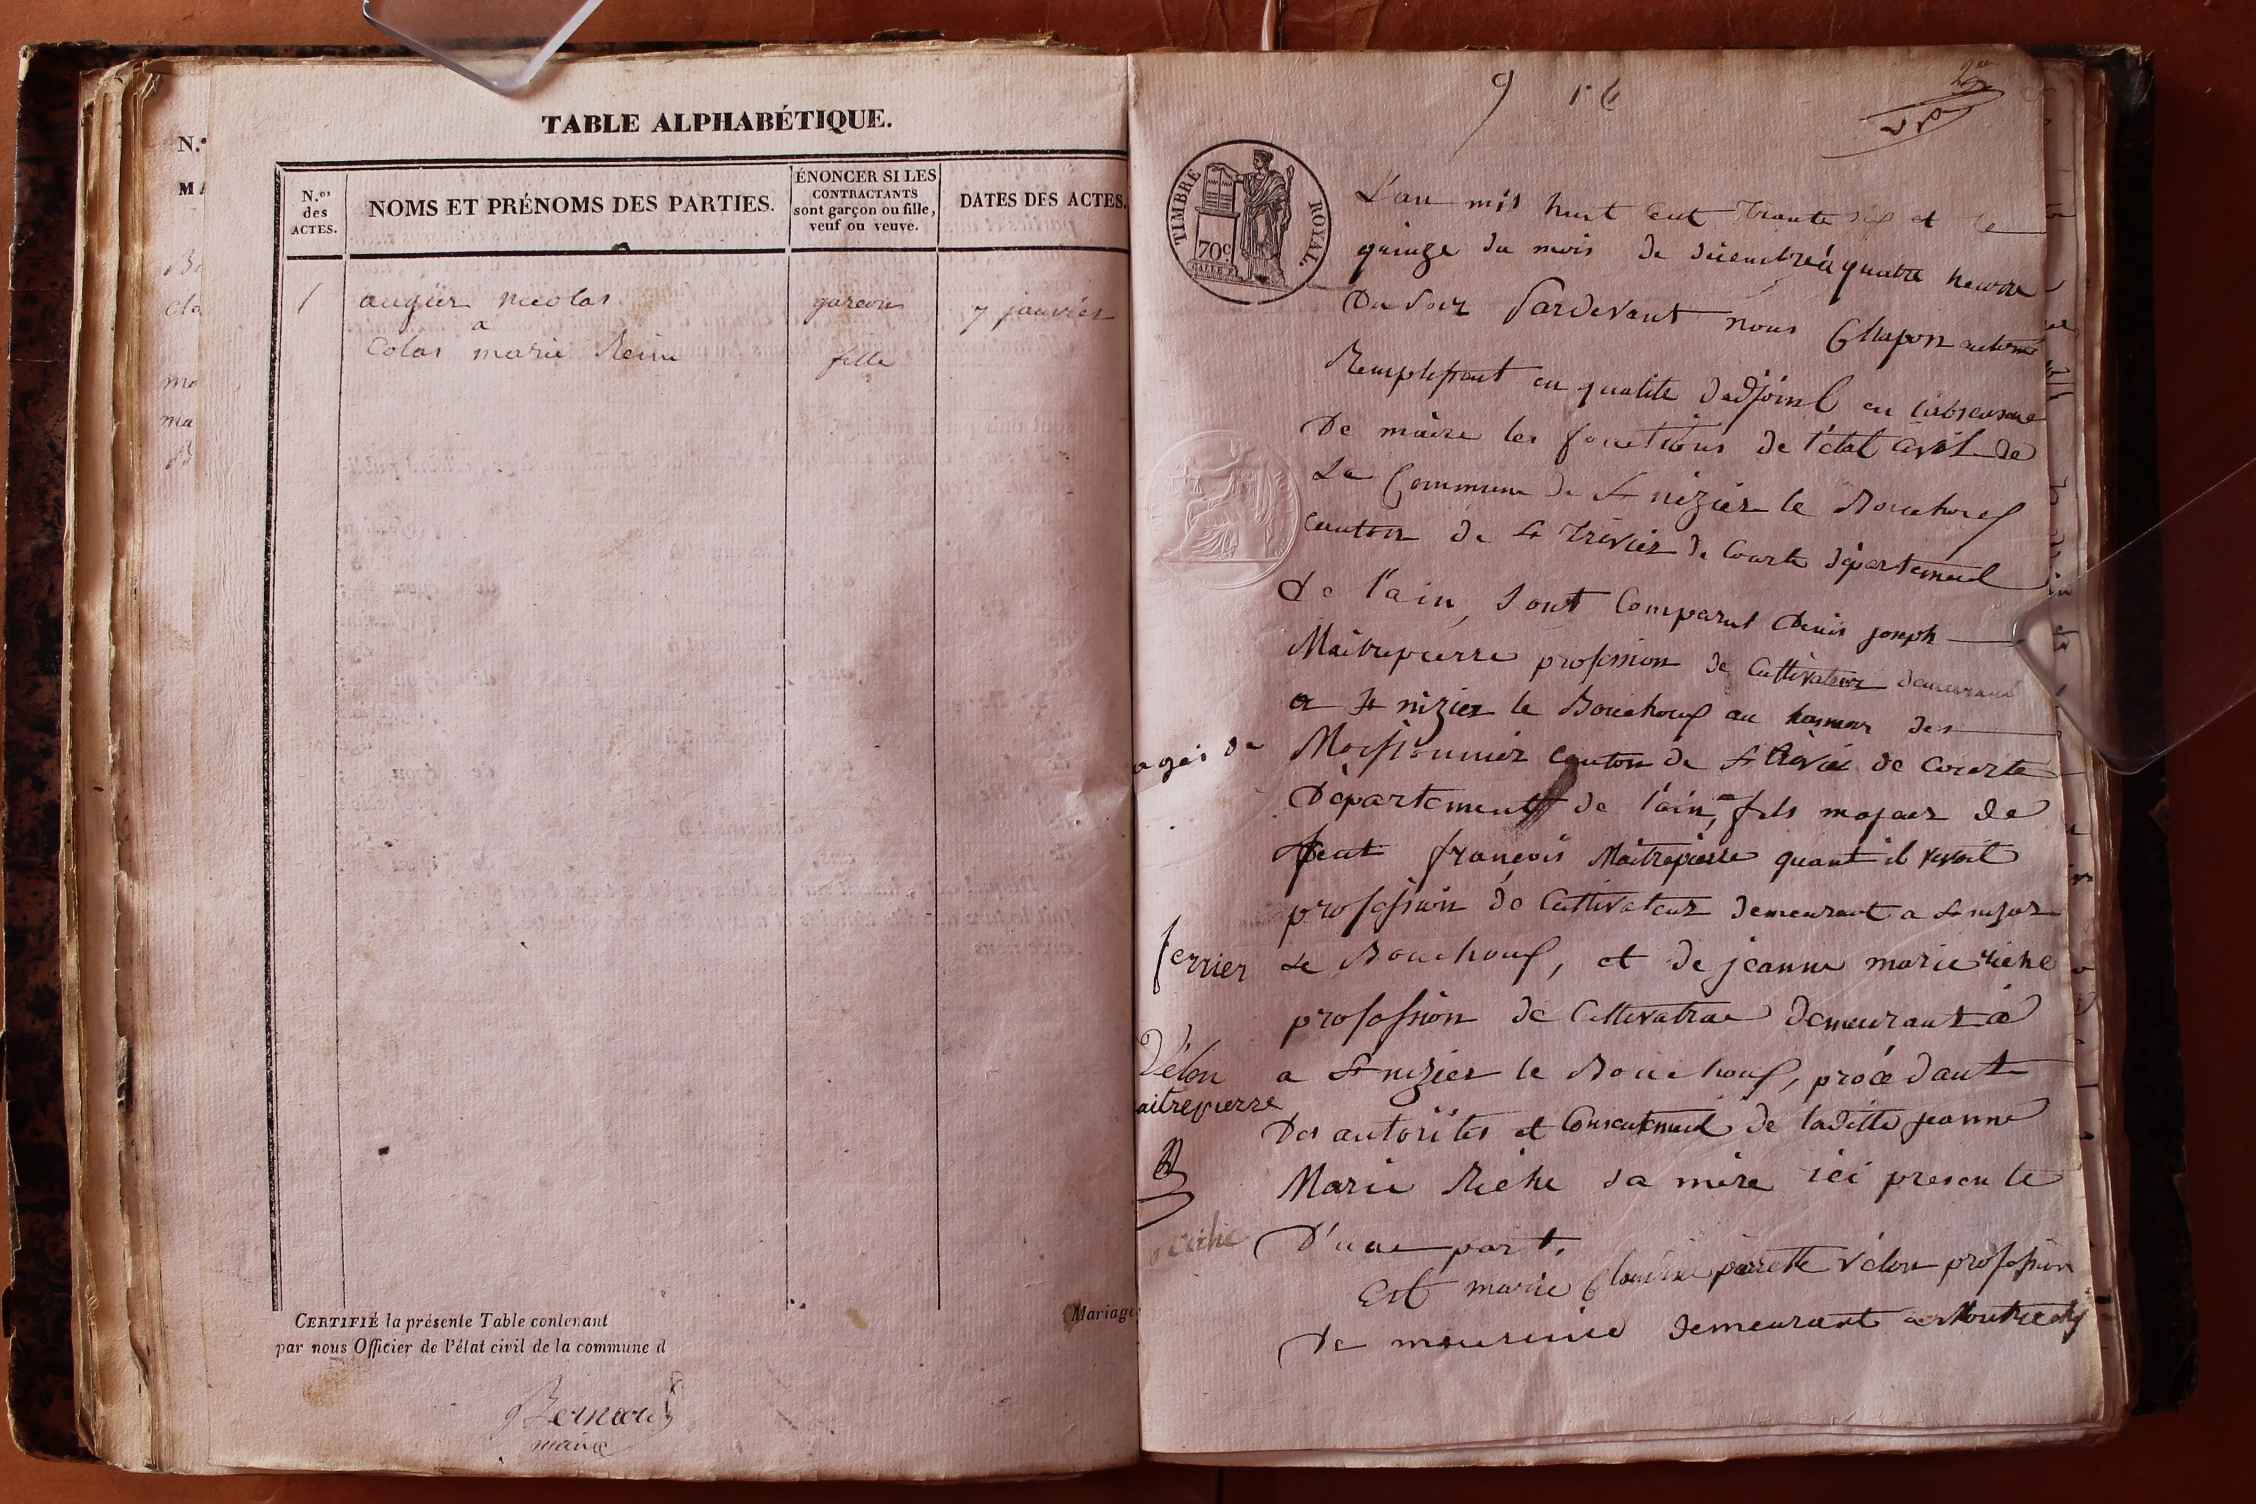 TABLE ALPHABÉTIQUE.
N.os des ACTES.
NOMS ET PRÉNOMS DES PARTIES.
ÉNONCER SI LES
CONTRACTANTS
sont garçon ou fille,
veuf ou veuve.
DATES DES ACTES.
1 augier nicolas garcon 7 janvier
a
Colas marie Reine fille
CERTIFIÉ la présente Table contenant
par nous Officier de l'état civil de la commune d
Mariage
Bernard
maire
N.o
MA
Be
cla
mo
ma
B
9
TIMBRE ROYAL.
70c.
L'an mil huit cent trante six et le
quinze du mois de dicembre a quatre heure
Du soir Pardevant nous Chapon antoine
Remplissant en qualité dadjoint en
De maire les fonctions de l'état civil de
La Commune de St nizier le Bouchoux
canton de St Trivier de Courte département
de l'ain, sont Comparut Denis joseph
Maitrepierre profession de Cultivateur demeurant
a St nizier le Bouchoux au hamau des
Moissonnier canton de St trivier de courte
Département de l'ain, fils majeur de
feut françois Maitrepierre quant il vivoit
profession de Cultivateur demeurant a St nizier
Le Bouchoux, et de jeanne marie riche
profession de Cultivatrice demeurant a
a St nizier le Bouchoux, procédant
Des autorités et Consentement de laditte jeanne
Marie Riche sa mère ici presente
D'une part.
Est marie Claudine pierrette Vélon profession
De demeurant a
agés de
ferrier
Vélon
aitrepierre
riche